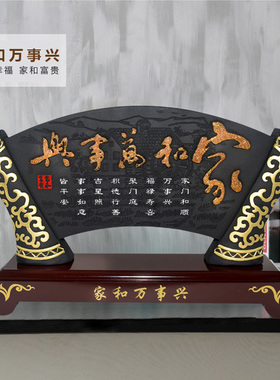 和万事兴
幸福 家和富贵
家和萬事興
家门和顺
万事兴
福禄寿喜
聚门庭
积德行善
吉星照
事事如意
皆平安
家和万事兴